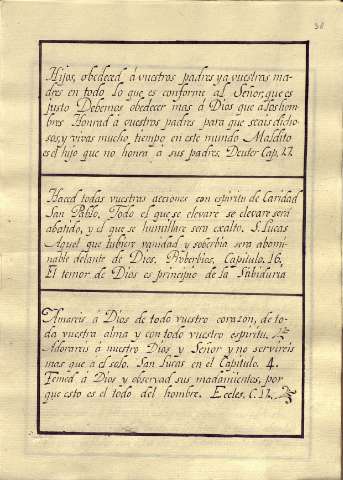 58
Hijos, obedeced á vuestros padres ya vuestras ma-
dres en todo lo que es conforme al Señor, que es
justo Debemos obedecer mas á Dios que a los hom
bres Honrad á vuestros padres para que seais dicho-
sos, y vivas mucho tiempo en este mundo Maldito
es el hijo que no honra á sus padres. Deuter Cap, 27
Haced todas vuestras acciones con espiritu de Caridad
San Pablo. Todo el que se elevare se elevare será
abatido, y el que se humillare sera exalto. S. Lucas
Aquel que tubiere vanidad y sobervia sera abomi-
nable delante de Dios. Proberbios, Capitulo. 16,
El temor de Dios es principio de la Sabiduria
Amareis á Dios de todo vuestro corazon, de to-
da vuestra alma y con todo vuestro espiritu.
Adorareis á nuestro Dios y Señor y no servireis
mas que á el solo. San Lucas en el Capitulo. 4.
Temed á Dios y observad sus madamientos, por
que esto es el todo del hombre. Eccles. C. 12.